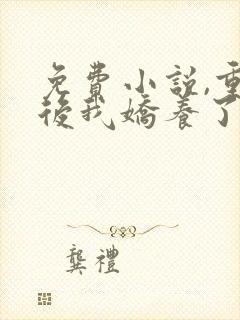 免費小說,重
後我嬌養了
龔禮